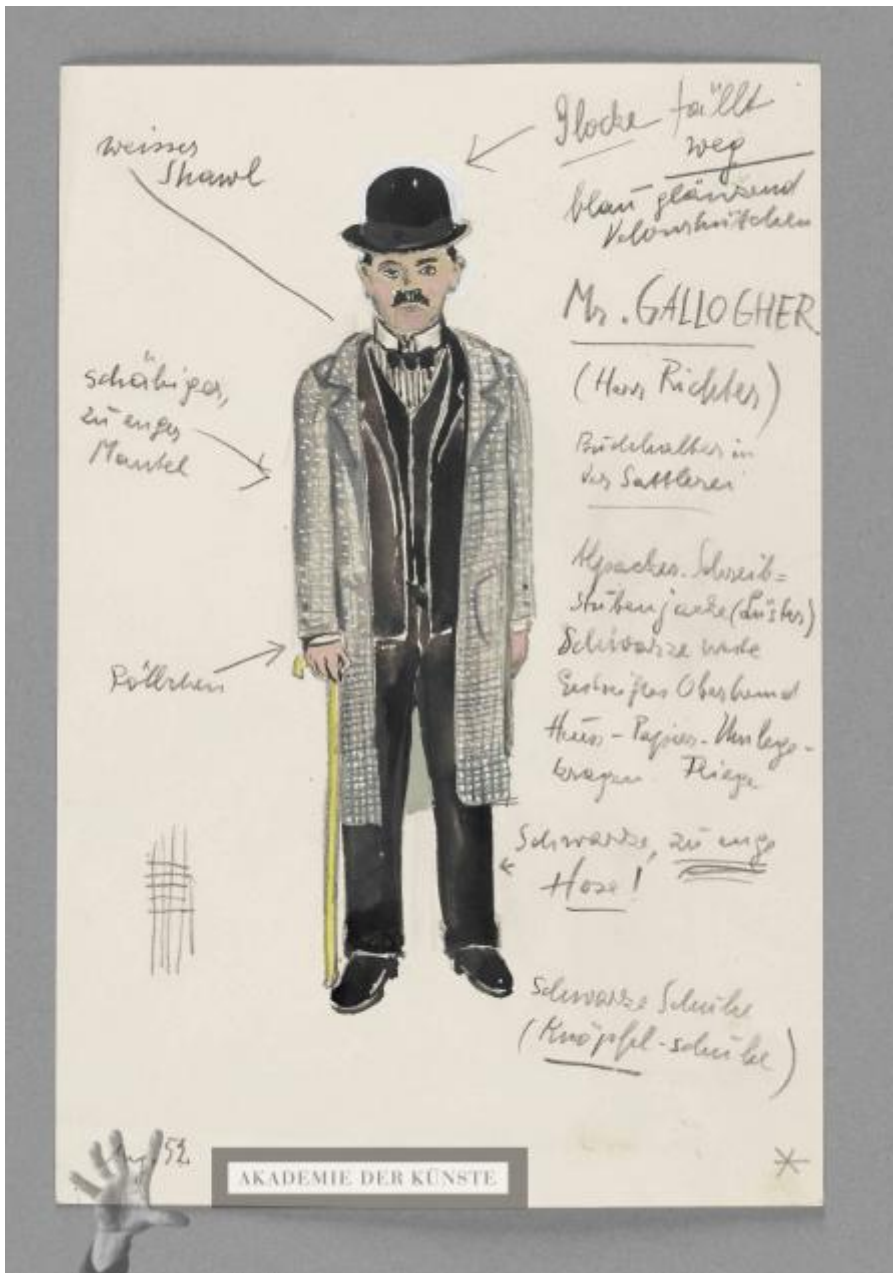 weisser
Shawl
schäbiger,
zu enger
Mantel
Röllchen
Glocke fällt
weg
blau glänzend
Velourhütchen
Mr. GALLOGHER
(Herr Richter)
Buchhalter in
der Sattlerei
Alpacker-Schreib=
stubenjacke (Lüster)
Schwarze
Gestreiftes Oberhemd
Papier-Umlege-
kragen Fliege
Schwarze, zu enge
Hose!
Schwarze Schuhe
(Knöpfel-schuhe)
52
AKADEMIE DER KÜNSTE